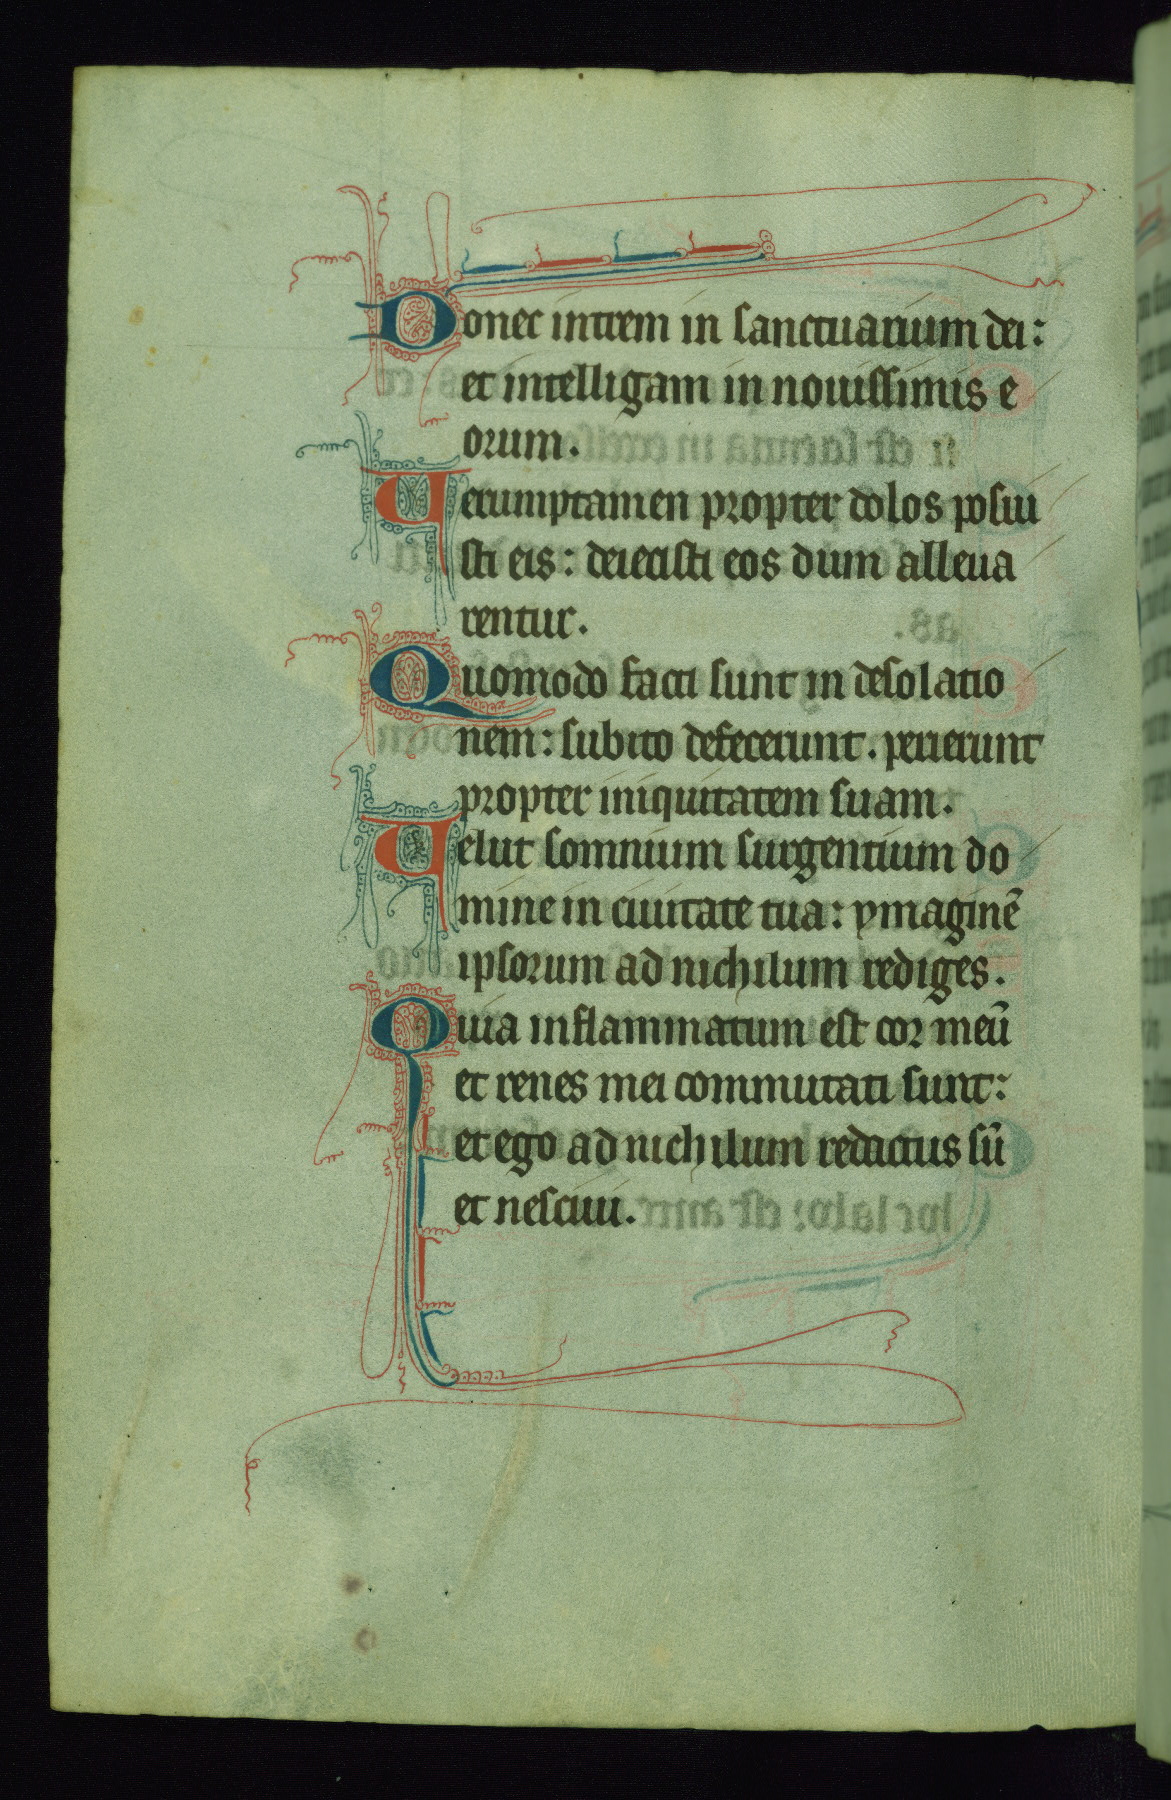 Donec intrem in sanctuarium dei:
et intelligam in nouissimis e
orum.
Uerumptamen propter dolos posui
sti eis: deiecisti eos dum alleua
rentur.
Quomodo facti sunt in desolatio
nem: subito defecerunt. perierunt
propter iniquitatem suam.
Uelut somnium surgentium do
mine in ciuitate tua: ymaginē
ipsorum ad nichilum rediges.
Quia inflammatum est cor meū
et renes mei commutati sunt:
et ego ad nichilum redactus sū
et nesciui.